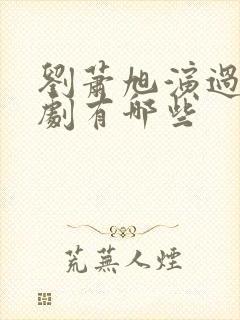 劉蕭旭演過
劇有哪些
荒蕪人煙